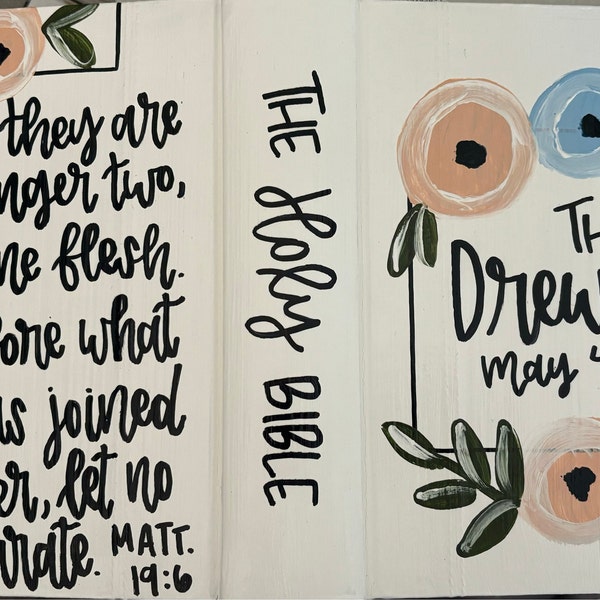 they are
nger two,
ne flesh.
ore what
as joined
er, let no
arate. MATT.
19:6
THE Holy BIBLE
Th
Drew
may